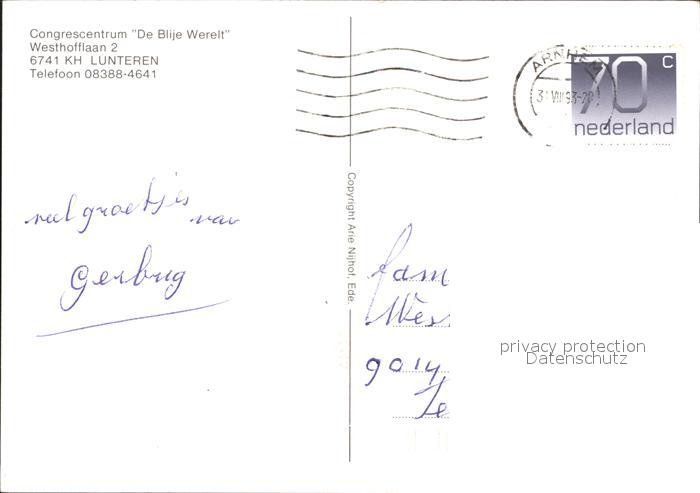 Congrescentrum "De Blije Werelt"
Westhofflaan 2
6741 KH LUNTEREN
Telefoon 08388-4641
ARNHEM
70 C
nederland
veel groetjes
van
Gerbrig
Copyright Arie Nijhof, Ede.
fam
Wes
9014
Te
privacy protection
Datenschutz